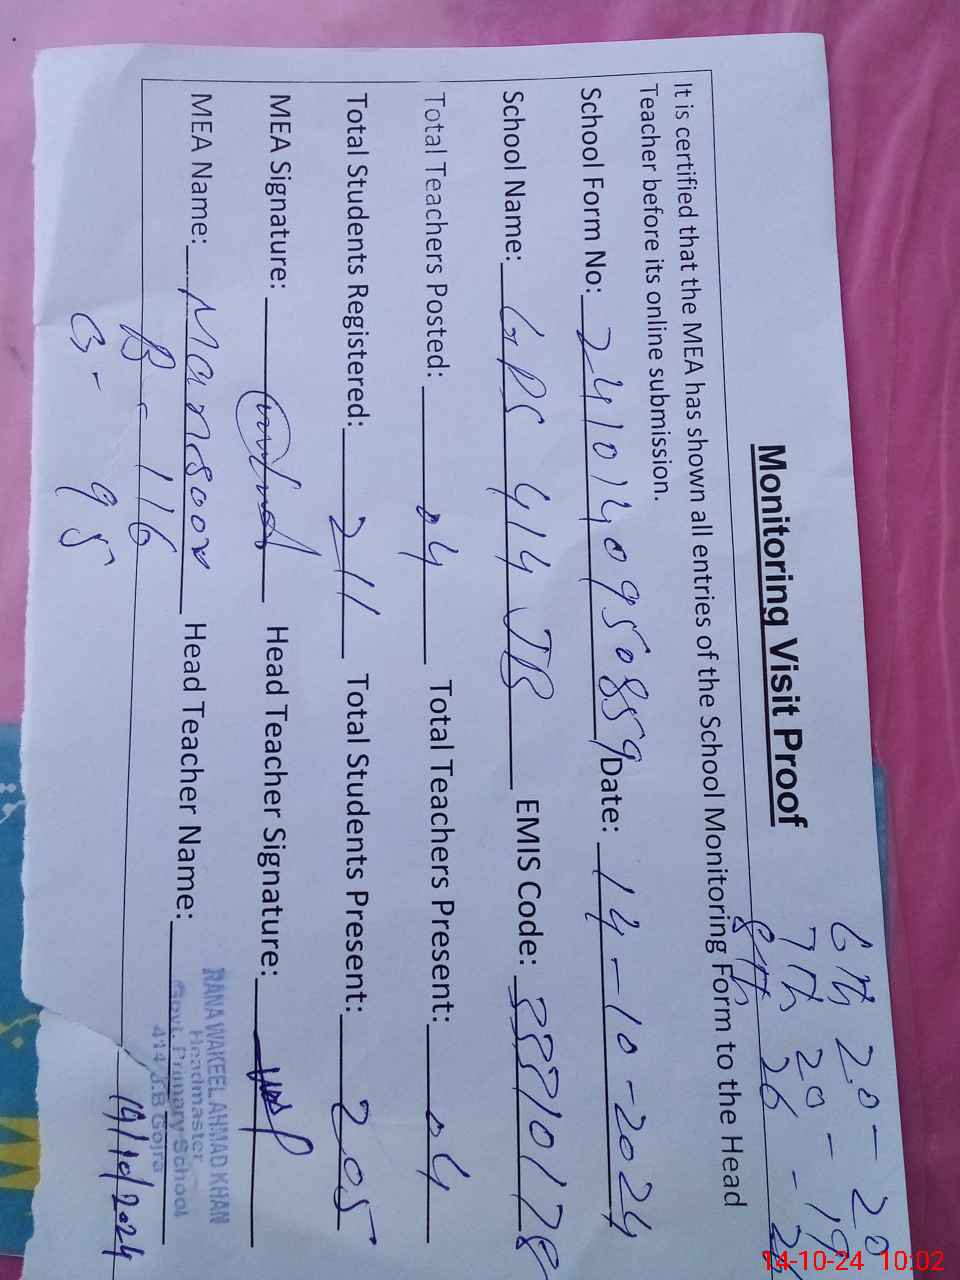 6th 20 - 20
7th 20 - 19
8th 26 - 26
Monitoring Visit Proof
It is certified that the MEA has shown all entries of the School Monitoring Form to the Head
Teacher before its online submission.
School Form No: 2410140950859 Date: 14-10-2024
School Name: GPS 414 JB EMIS Code:
Total Teachers Posted: 04 Total Teachers Present: 04
Total Students Registered: 211 Total Students Present: 205
MEA Signature: Head Teacher Signature:
MEA Name: Mansoor Head Teacher Name:
RANA WAKEEL AHMAD KHAN
Headmaster
Govt. Primary School
414 J.B Gojra
B - 116
G - 95
14/10/2024
14-10-24 10:02